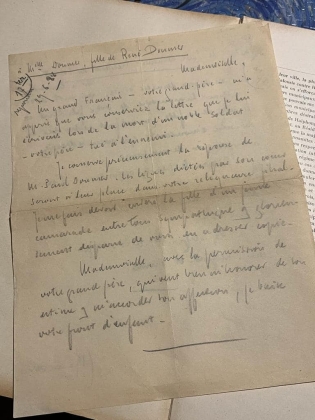 à Mlle Doumer, fille de René Doumer
Mademoiselle,
Un grand Français - votre grand-père - m'a
appris que vous conserviez la lettre que je lui
écrivais lors de la mort d'un noble soldat
- votre père - tué à l'ennemi.
Je conserve précieusement la réponse de
Mr Paul Doumer. Les lignes dictées par son coeur
seront à leur place dans votre
devoir envers la fille d'un
camarade entre tous sympathique
de vous en adresser copie.
Mademoiselle, avec la permission de
votre grand père, qui veut bien m'honorer de son
estime et m'accorder son affection, je baise
votre front d'enfant.